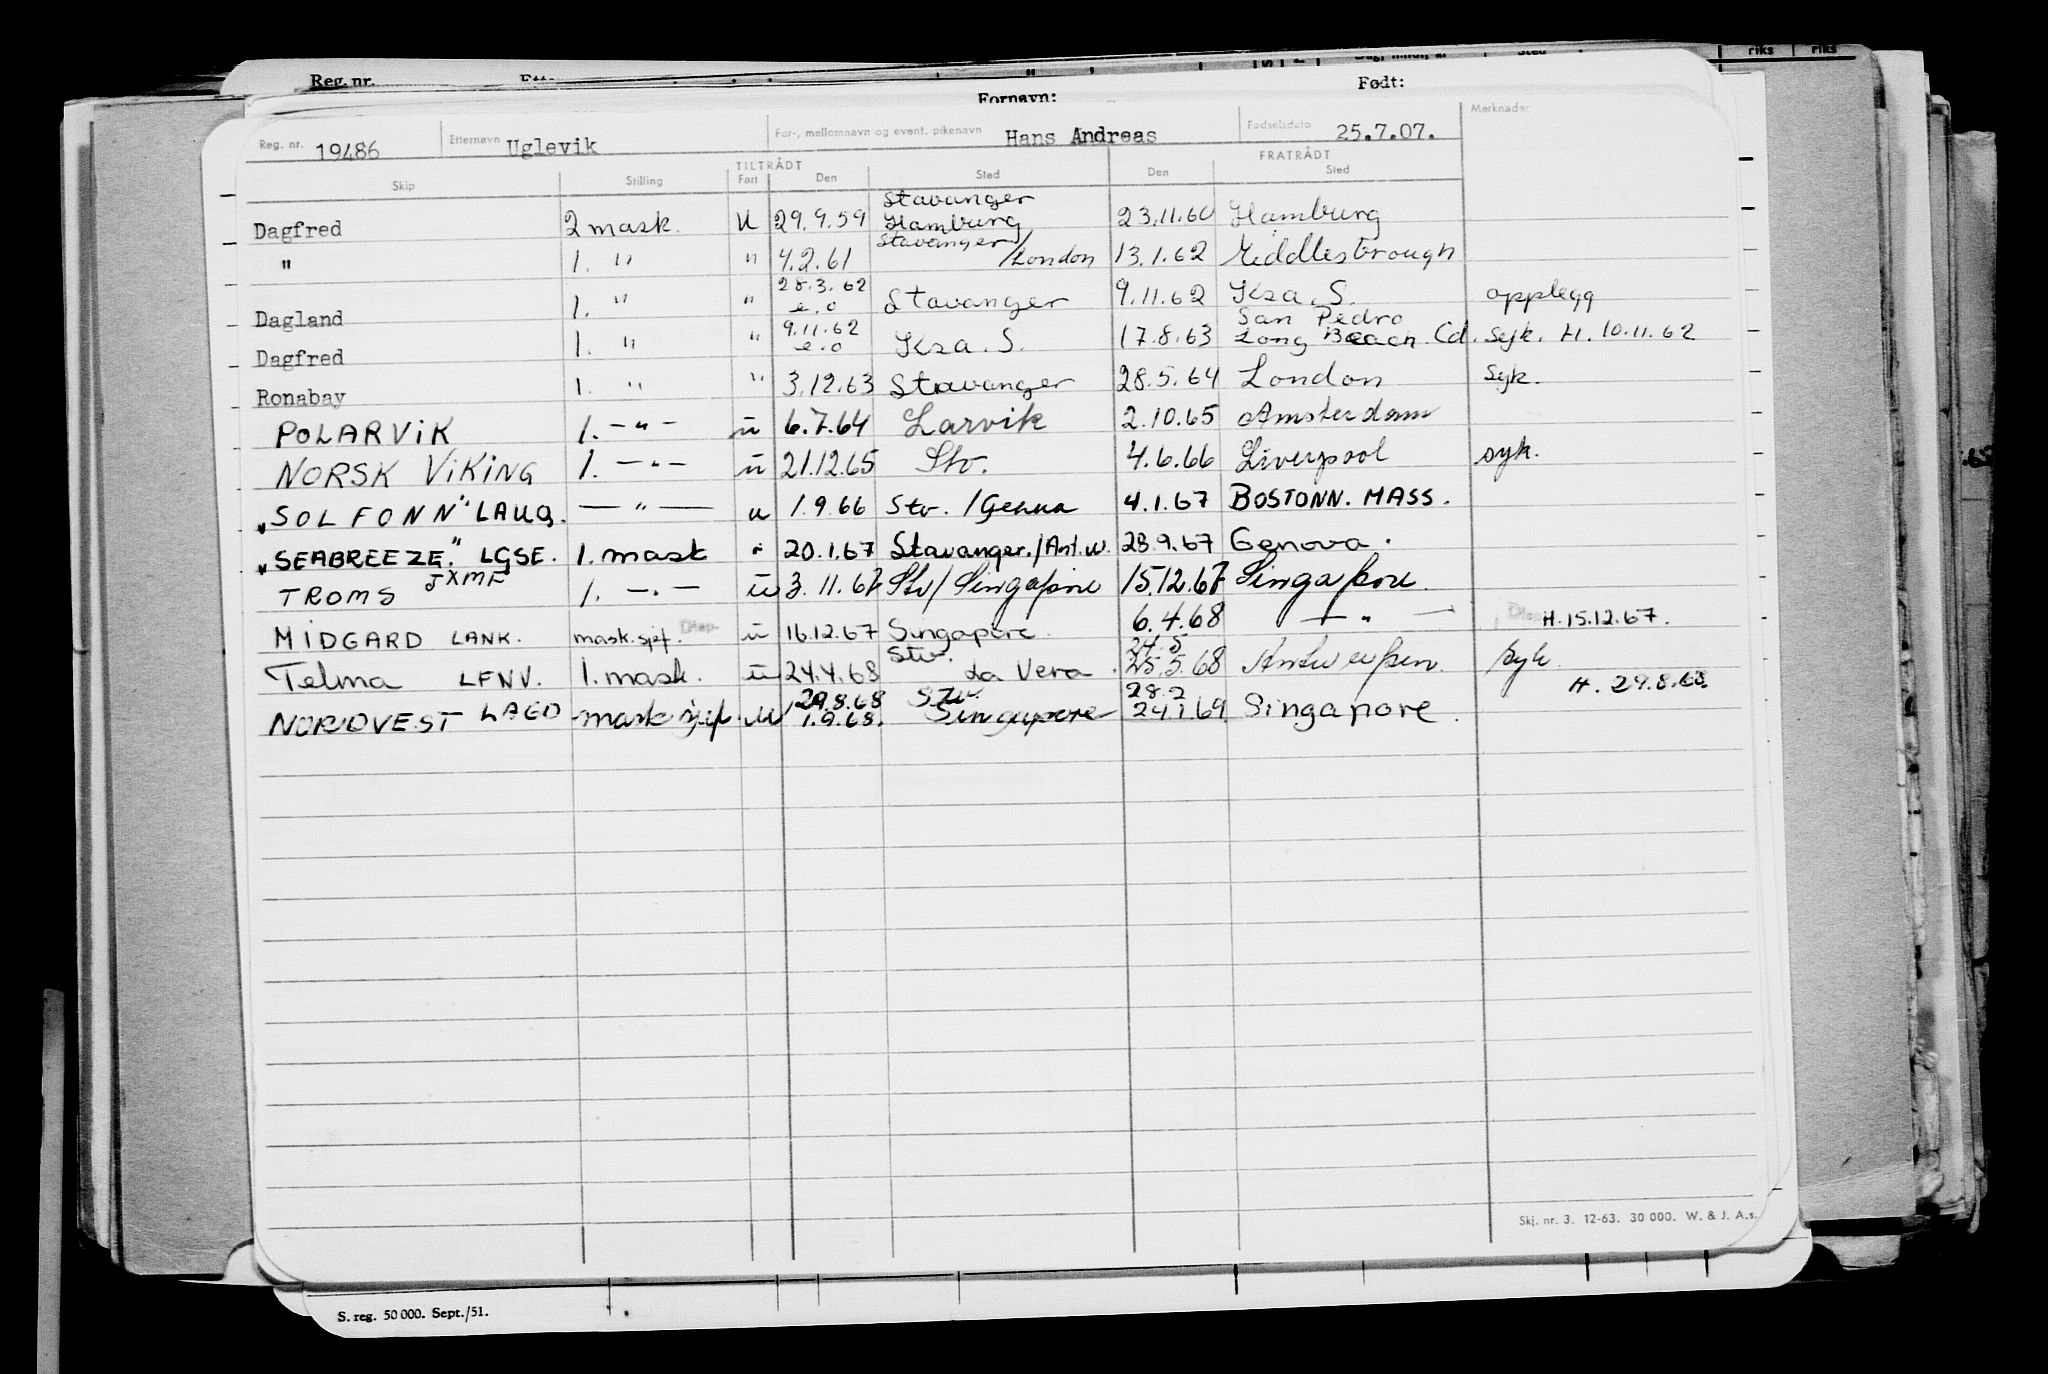 riks riks
Reg. nr.
Fornavn: Født:
Reg. nr. 19486 Etternavn Uglevik For-, mellomnavn og event. pikenavn Hans Andreas Fødselsdato 25.7.07. Merknader
TILTRÅDT FRATRÅDT
Skip Stilling Fart Den Sted Den Sted
Stavanger
Dagfred 2 mask. U 29.9.59 Hamburg 23.11.60 Hamburg
" 1. " " 4.2.61 Stavanger/London 13.1.62 Middlesbrough
28.3.62
Dagland 1. " " e.o Stavanger 9.11.62 Ksa. S. opplegg
9.11.62 San Pedro
Dagfred 1. " " e.o Ksa. S. 17.8.63 Long Beach. Cal. Syk. H. 10.11.62
Ronabay 1. " " 3.12.63 Stavanger 28.5.64 London Syk.
POLARVIK 1. - " - u 6.7.64 Larvik 2.10.65 Amsterdam
NORSK VIKING 1. - " - u 21.12.65 Stv. 4.6.66 Liverpool syk.
"SOLFONN" LAUQ. - " - u 1.9.66 Stv. /Genua 4.1.67 BOSTONN. MASS.
"SEABREEZE." LGSE. 1. mask " 20.1.67 Stavanger./Ant.w. 23.9.67 Genova.
TROMS JXMF 1. - " - u 3.11.67 Stv/Singapore 15.12.67 Singapore
MIDGARD LANK. mask.sjef. Disp. u 16.12.67 Singapore 6.4.68 - " - Disp H.15.12.67.
Stv. 24.5
Telma LFNV. 1. mask. u 24.4.68 La Vera. 25.5.68 Antwerpen. Syk
29.8.68 Stv. 28.2 H. 29.8.68.
NORDVEST LAED mask sjef. u 1.9.68. Singapore 24.1.69 Singapore.
Skj. nr. 3. 12-63. 30 000. W. & J. A.s.
S. reg. 50 000. Sept./51.